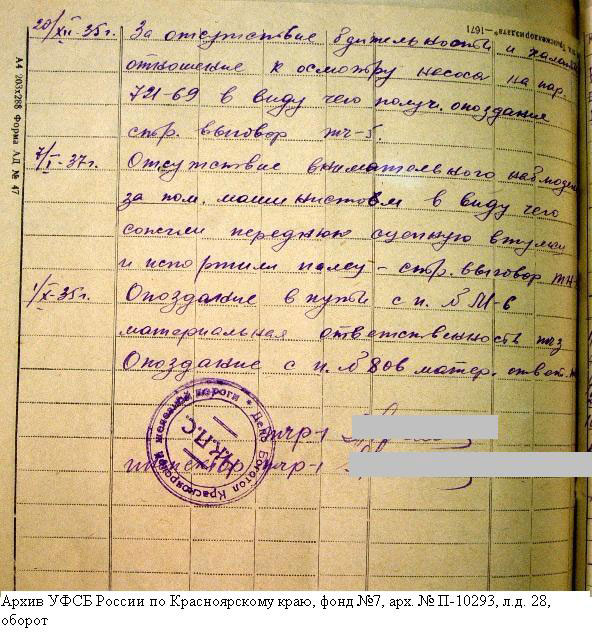 20/XII-35г. За отсутствие бдительности и халатн
отношение к осмотру насоса на пар.
721-69 в виду чего получ. опоздание
стр. выговор тч-5.
7/I-37г. Отсутствие внимательного наблюден
за пом. машинистом в виду чего
сожгли переднюю сцепную втулку
и испортили палец - стр. выговор тч-
1/X-35г. Опоздание в пути с п. № М-6
материальная ответственность тч3
Опоздание с п. № 806 матер. ответ.
тчр-1
инспектор тчр-1
Депо Боготол Красноярской железной дороги
Н.К.П.С.
А4 203x288 Форма АД № 47
-1671
Архив УФСБ России по Красноярскому краю, фонд №7, арх. № П-10293, л.д. 28,
оборот